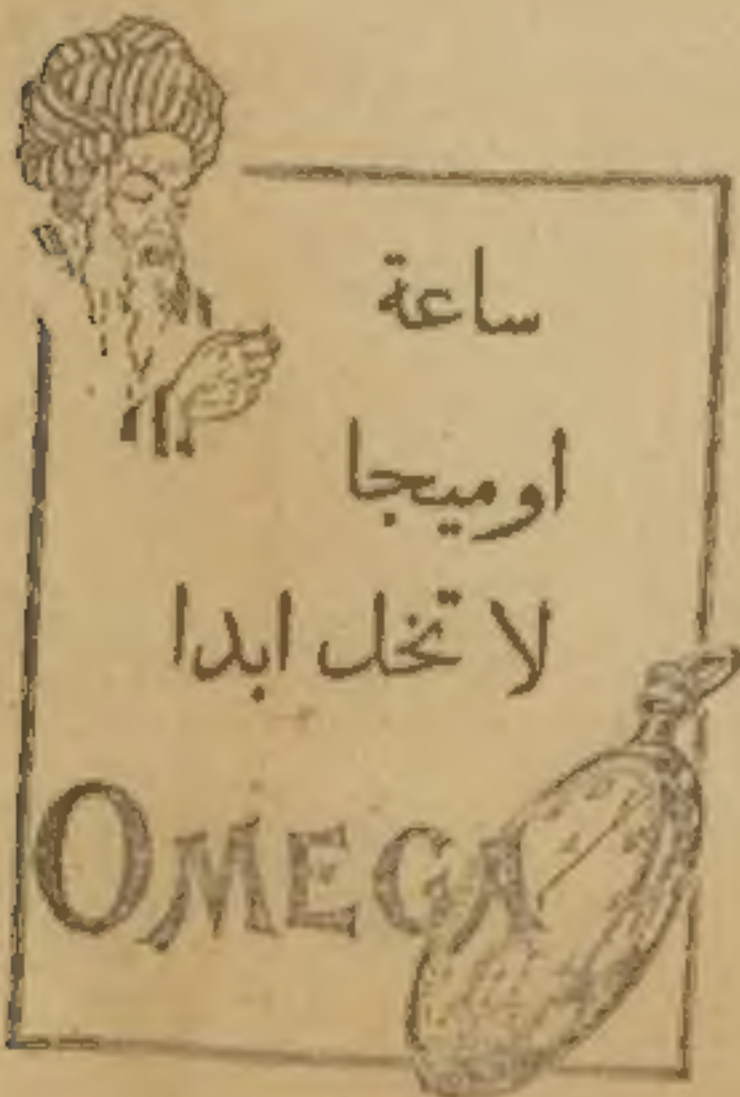 ساعة
اوميجا
لا تخل ابدا
OMEGA